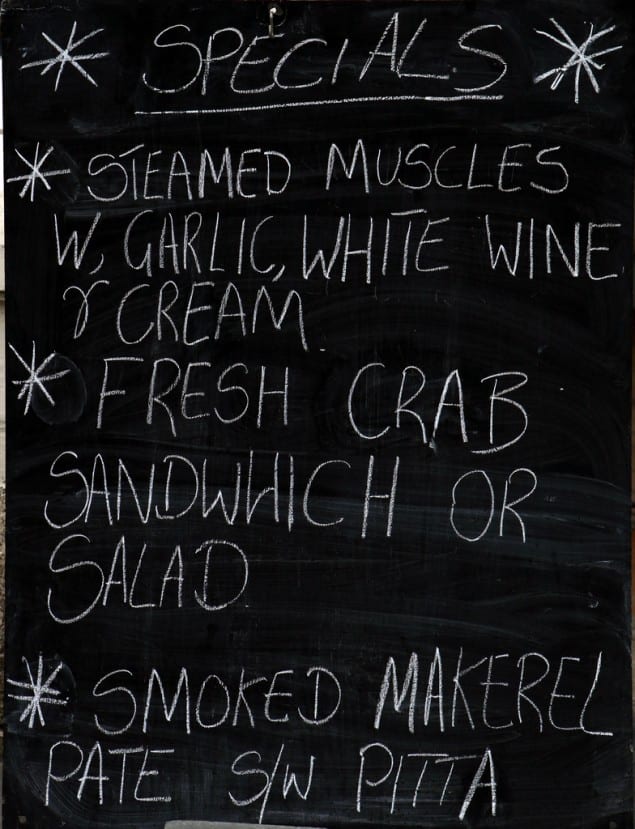 * SPECIALS *
* STEAMED MUSCLES
W, GARLIC, WHITE WINE
& CREAM.
* FRESH CRAB
SANDWHICH OR
SALAD.
* SMOKED MAKEREL
PATE S/W PITTA